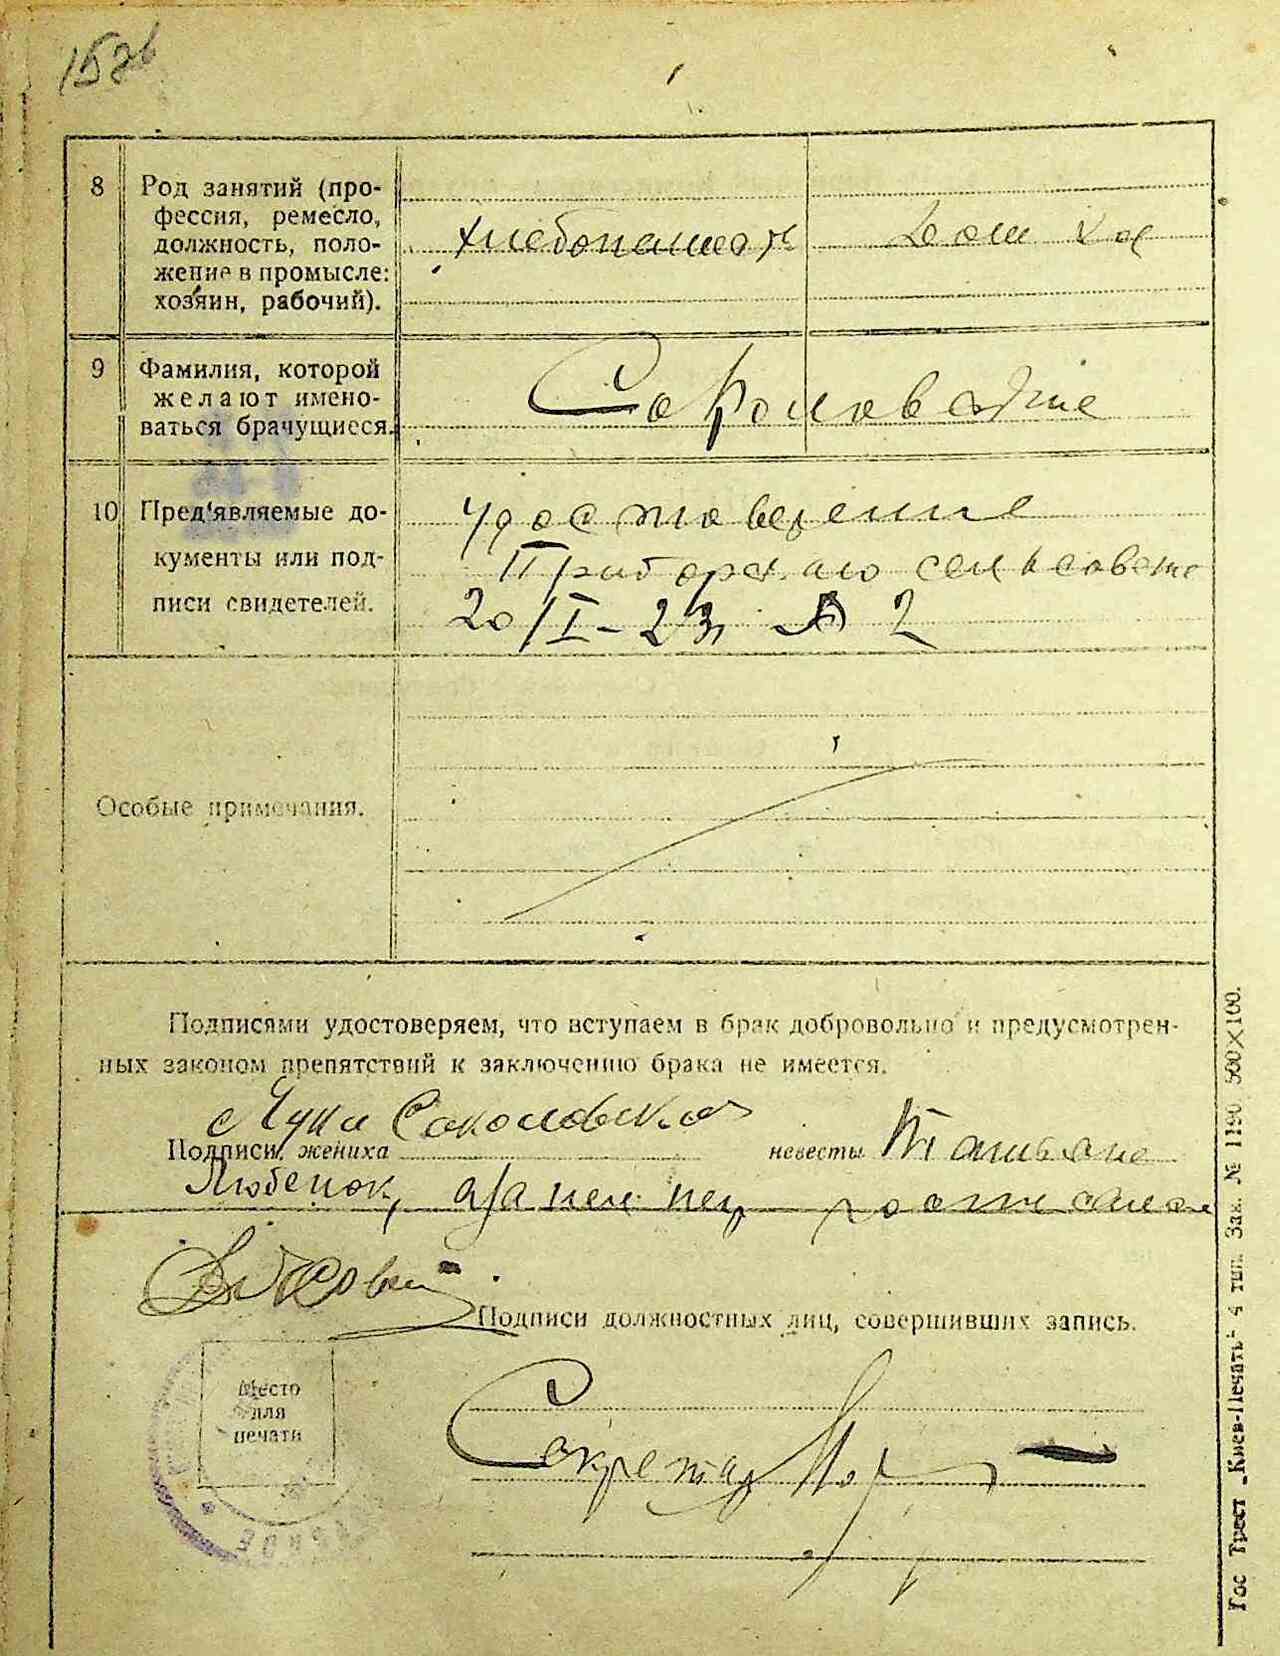 8 Род занятий (про-
фессия, ремесло,
должность, поло-
жение в промысле:
хозяин, рабочий).
хлебопашество Дом хоз
9 Фамилия, которой
желают имено-
ваться брачущиеся.
10 Пред'являемые до-
кументы или под-
писи свидетелей.
Удостоверение
Приборского сельсовета
20/I-23 № 2
Особые примечания.
Подписями удостоверяем, что вступаем в брак добровольно и предусмотрен-
ных законом препятствий к заключению брака не имеется.
Лука Соколовский
Подписи: жениха невесты Татьяна
Любенок, а за нея
Подписи должностных лиц, совершивших запись.
Место
для
печати
Секретарь
Гос Трест „Киев-Печать" 4 тип. Зак. № 1190 500×100.